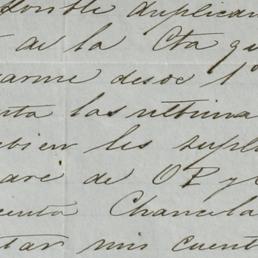 posible duplicar
de la Cta qu
arme desde 1º
nta las ultima
bien les supl
are de OP y
cuenta Chancela
tar mis cuent